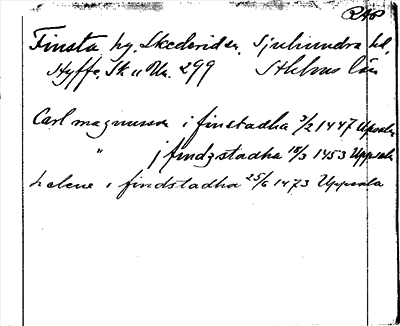 Finsta by, Skederids sn, Sjuhundra hd,
Hyffe, Sk u Un. 299 Sthlms län
Carl magnusson i finstadha 3/2 1447 Uppsala
" j findzstadha 18/3 1453 Uppsala
helene i findstadha 25/6 1473 Uppsala